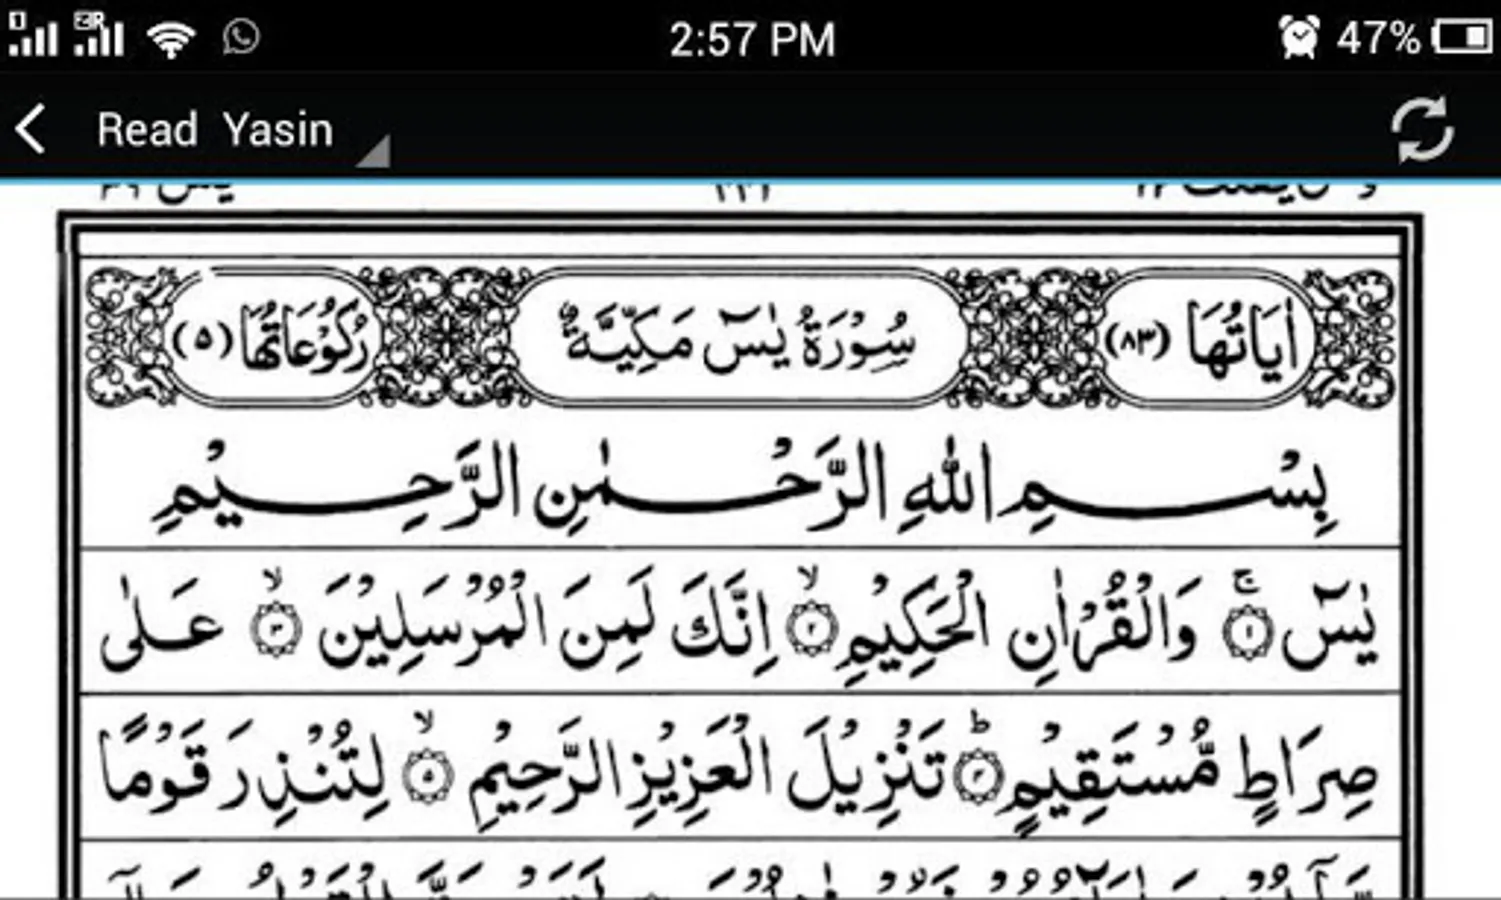 2:57 PM 47%
Read Yasin
اٰيَاتُهَا (٨٣) سُوْرَةُ يٰسٓ مَكِّيَّةٌ رُكُوْعَاتُهَا (٥)
بِسْمِ اللّٰهِ الرَّحْمٰنِ الرَّحِيْمِ
يٰسٓ ۚ ﴿١﴾ وَالْقُرْاٰنِ الْحَكِيْمِ ۙ ﴿٢﴾ اِنَّكَ لَمِنَ الْمُرْسَلِيْنَ ۙ ﴿٣﴾ عَلٰى
صِرَاطٍ مُّسْتَقِيْمٍ ؕ ﴿٤﴾ تَنْزِيْلَ الْعَزِيْزِ الرَّحِيْمِ ۙ ﴿٥﴾ لِتُنْذِرَ قَوْمًا